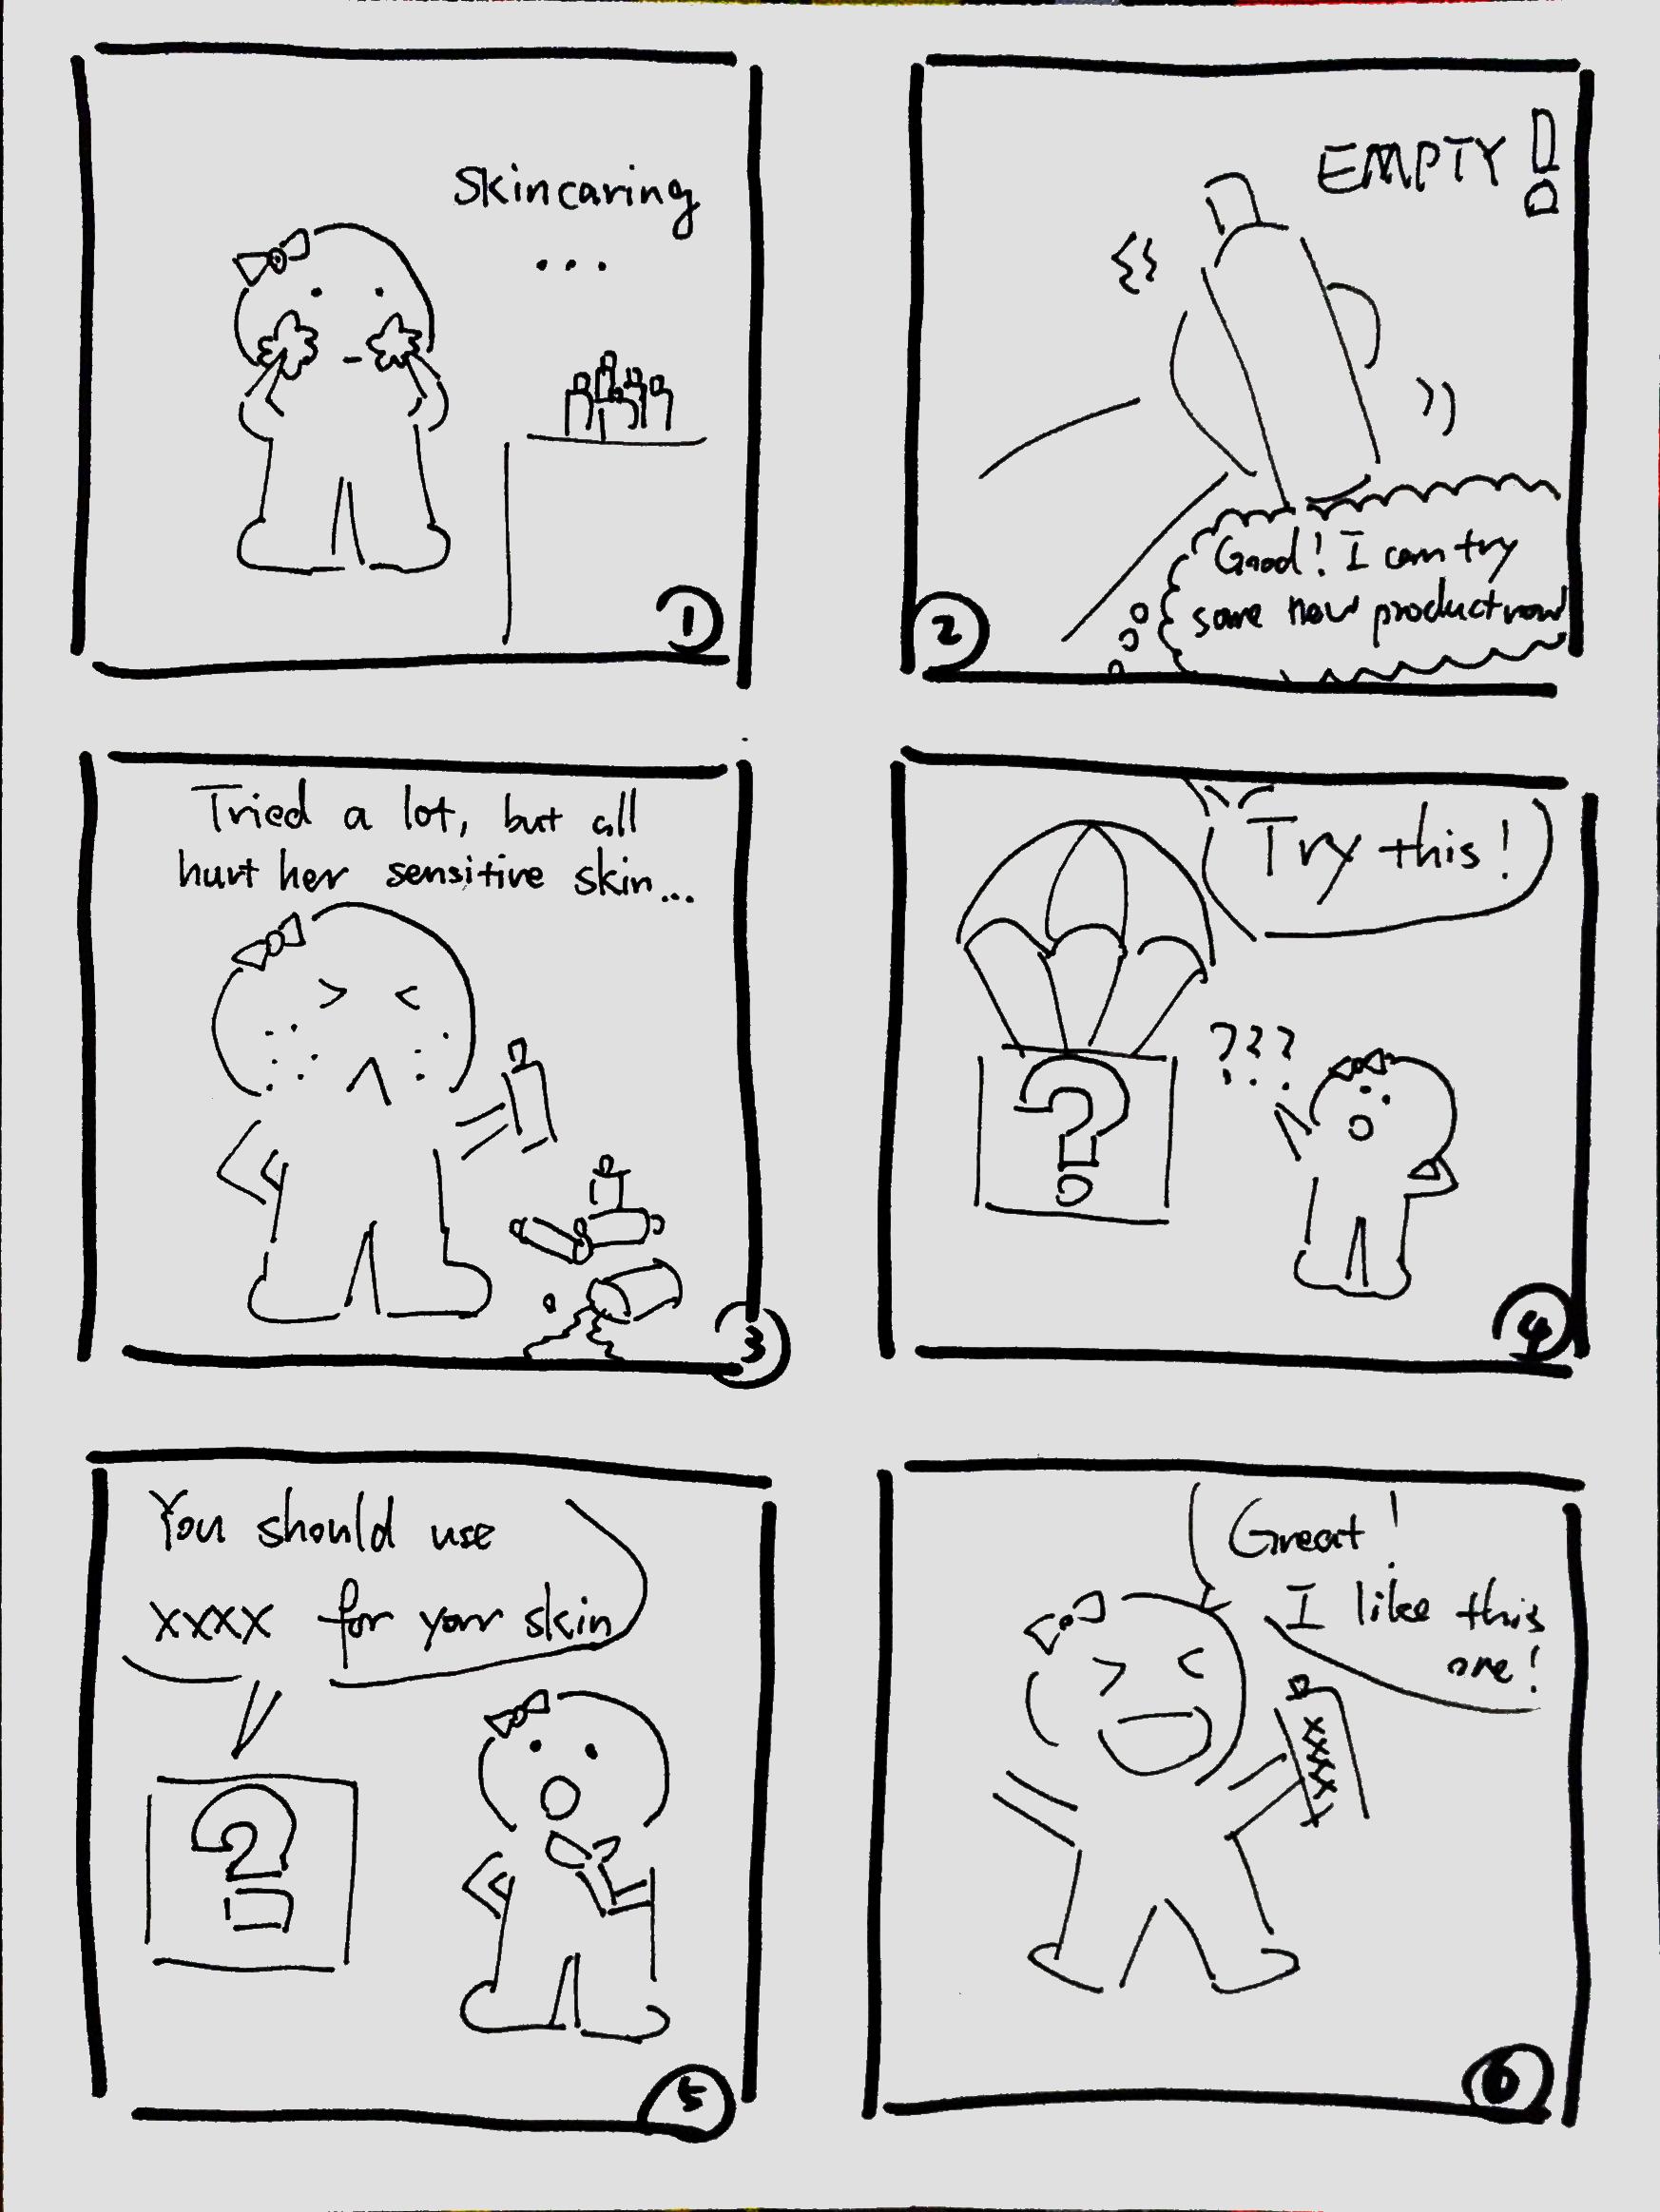 Skincaring
...
1
EMPTY!
Good! I can try
some new product now
2
Tried a lot, but all
hurt her sensitive skin...
3
Try this!
???
?
4
You should use
xxxx for your skin
?
5
Great!
I like this
one!
xxxx
6